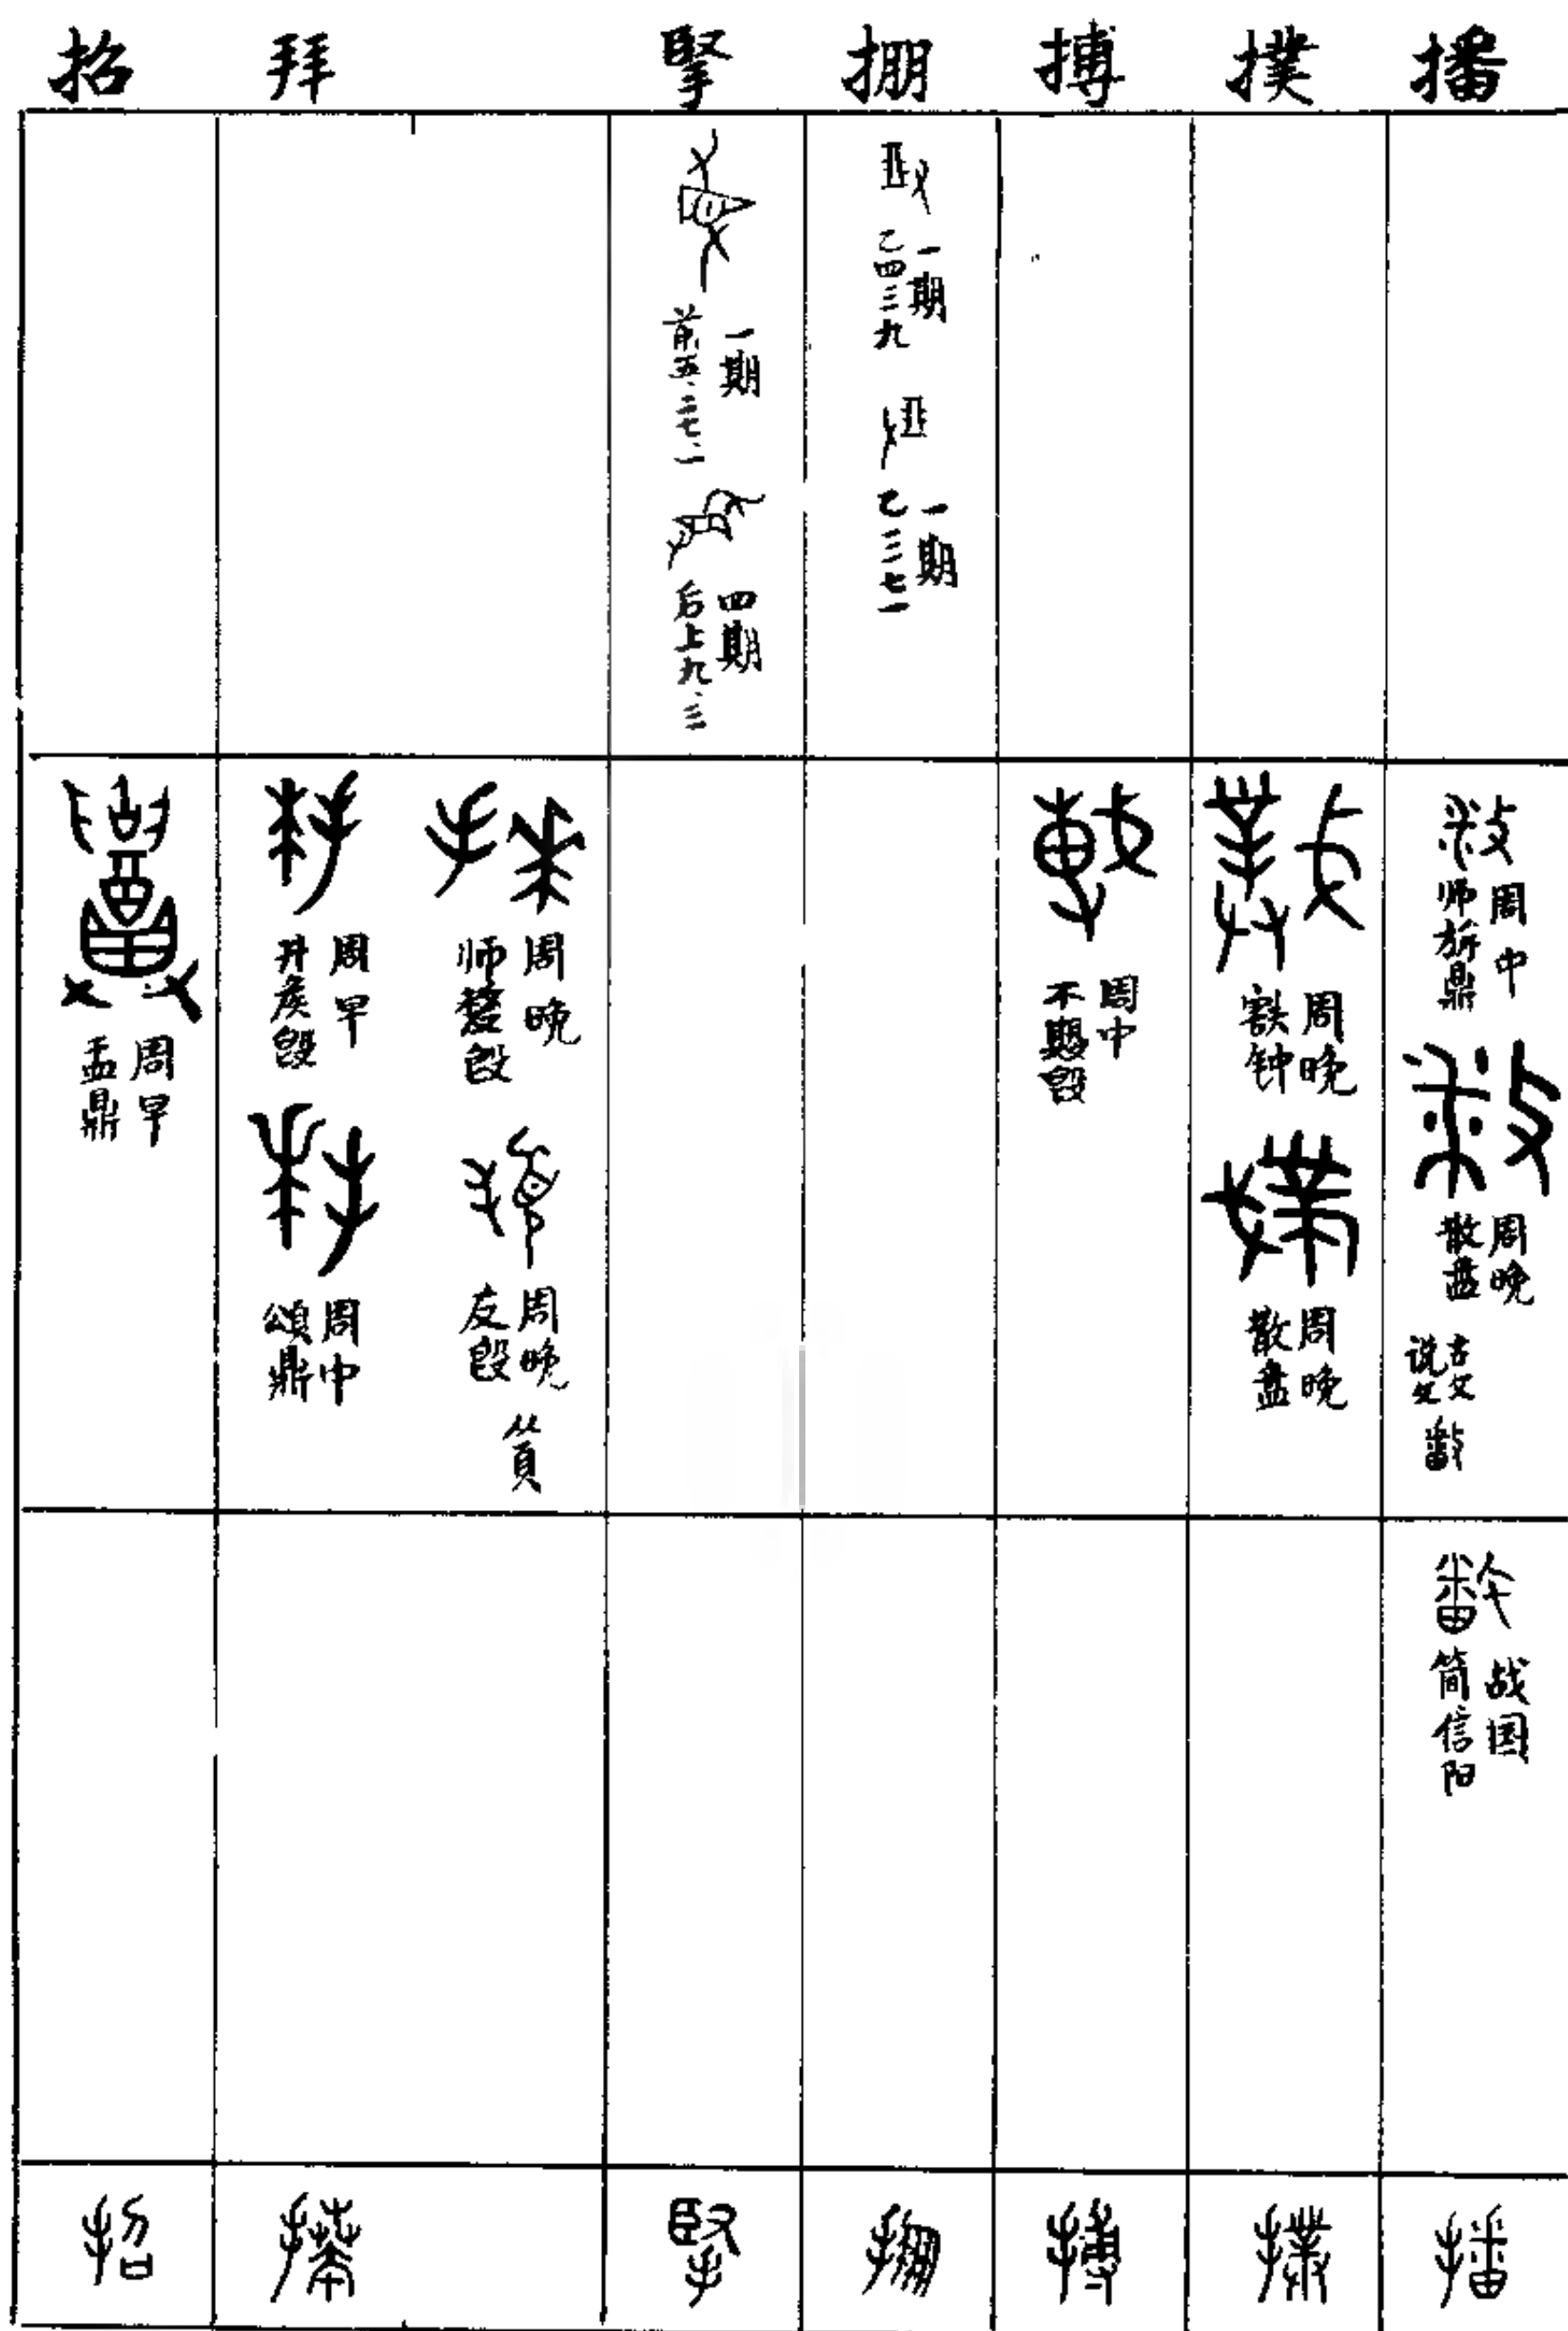 播
撲
搏
掤
掔
拜
招
一期
乙四三九
一期
乙三七一
一期
前五.二七.一
四期
后上九.三
周中
师旂鼎
周晚
散盘
古文
说文
周晚
㝬钟
周晚
散盘
周中
不𡢁𣪘
周晚
师𠭰𣪘
周晚
友𣪘
从頁
周早
井侯𣪘
周中
頌鼎
周早
盂鼎
战国
简信阳
播
撲
搏
掤
掔
𢳎
招